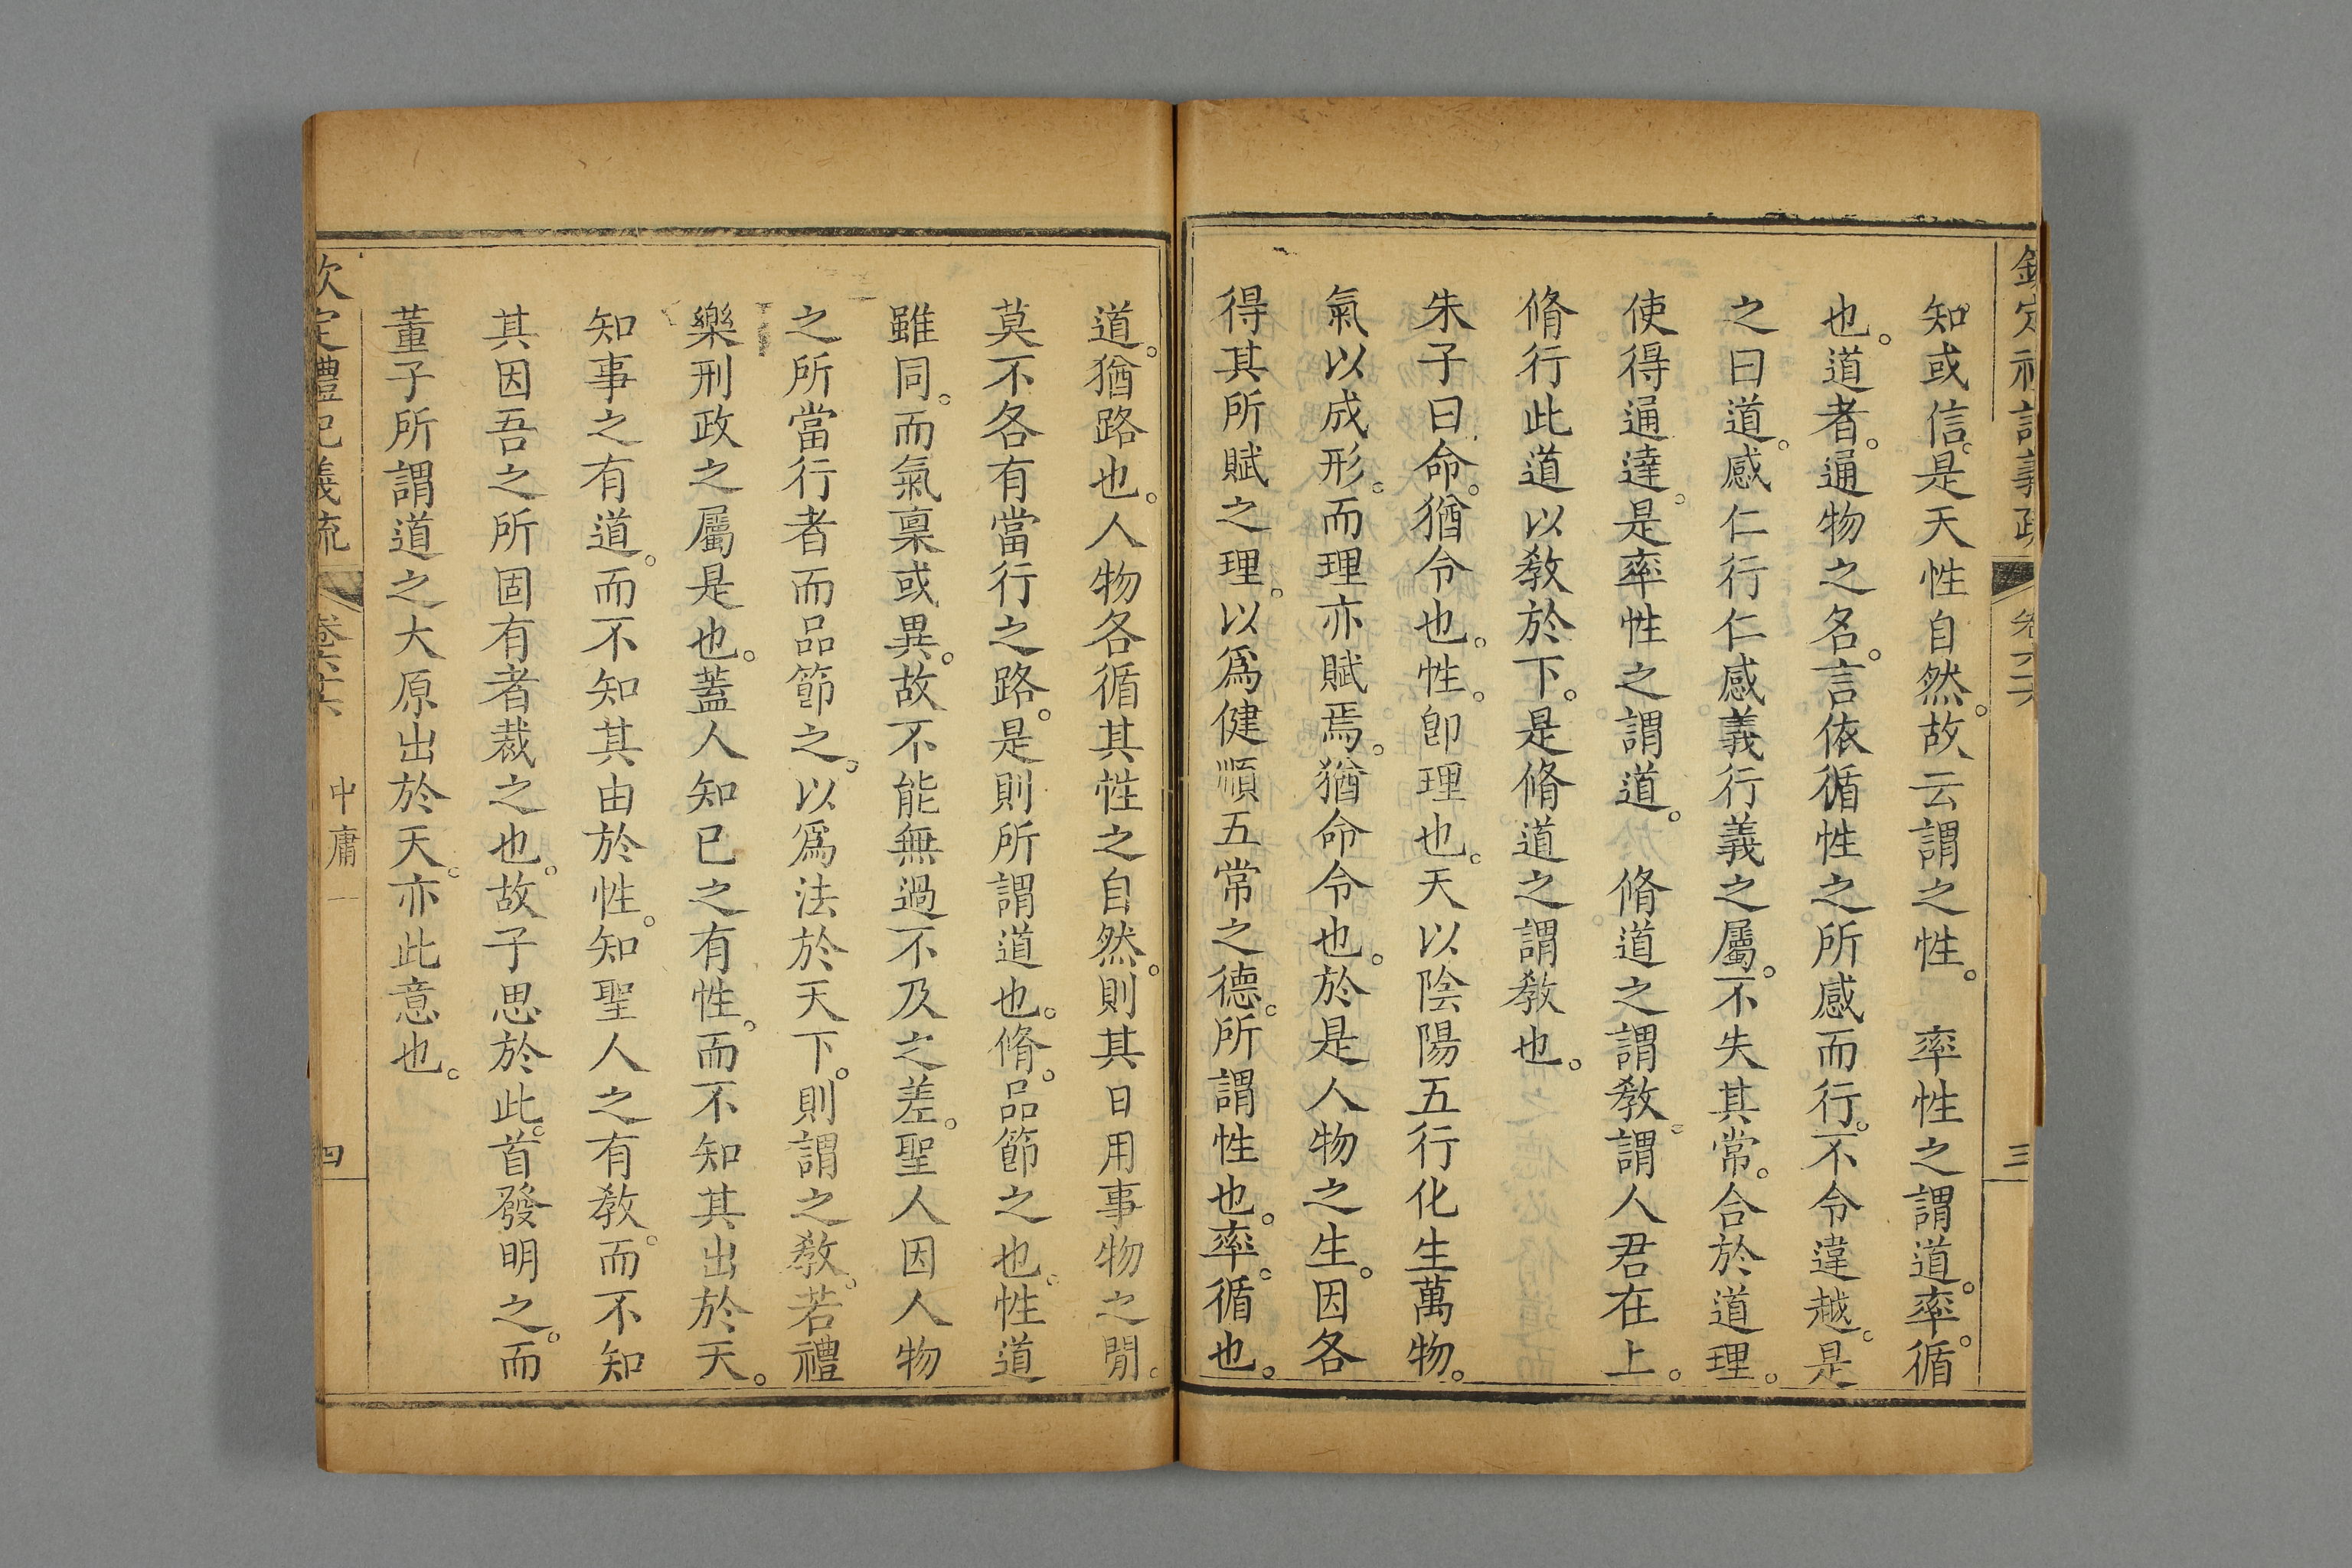 欽定禮記義疏 卷六十六 三
知或信。是天性自然。故云謂之性。 率性之謂道。率。循
也。道者。通物之名。言依循性之所感而行。不令違越。是
之曰道。感仁行仁感義行義之屬。不失其常。合於道理。
使得通達。是率性之謂道。 脩道之謂敎。謂人君在上。
脩行此道以敎於下。是脩道之謂敎也。
朱子曰命。猶令也。性。卽理也。天以陰陽五行化生萬物。
氣以成形。而理亦賦焉。猶命令也。於是人物之生。因各
得其所賦之理。以爲健順五常之德。所謂性也。率。循也。
道。猶路也。人物各循其性之自然。則其日用事物之閒。
莫不各有當行之路。是則所謂道也。脩。品節之也。性道
雖同。而氣稟或異。故不能無過不及之差。聖人因人物
之所當行者而品節之。以爲法於天下。則謂之敎。若禮
樂刑政之屬是也。蓋人知已之有性。而不知其出於天。
知事之有道。而不知其由於性。知聖人之有敎。而不知
其因吾之所固有者裁之也。故子思於此。首發明之。而
董子所謂道之大原出於天。亦此意也。
欽定禮記義疏 卷六十六 中庸一 四